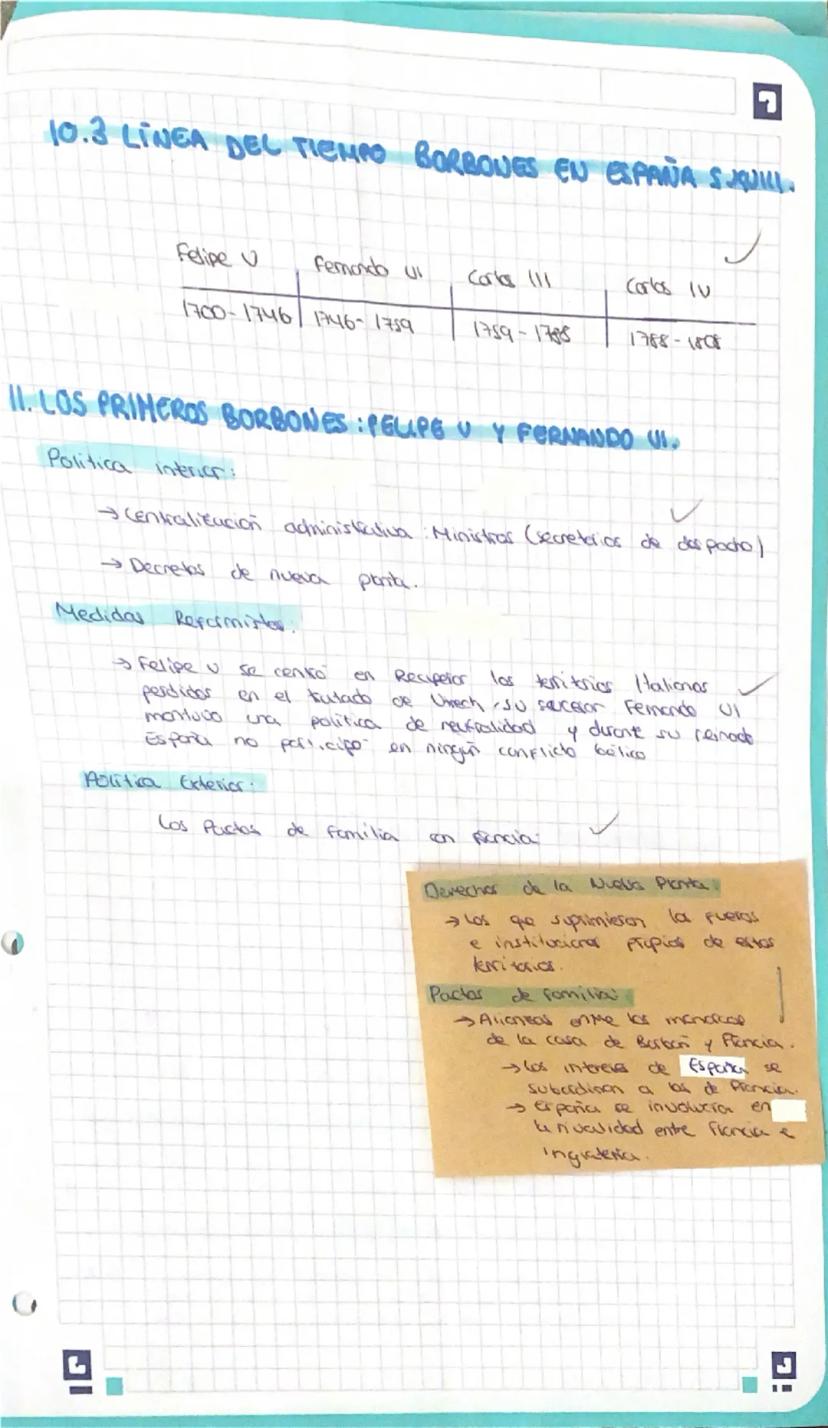 10.3 LÍNEA DEL TIEMPO BORBONES EN ESPAÑA S.XVIII.
Felipe V Fernando VI Carlos III Carlos IV
1700-1746 1746-1759 1759-1788 1788-1808
11. LOS PRIMEROS BORBONES: FELIPE V Y FERNANDO VI.
Politica interior:
→ Centralización administrativa: Ministros (secretarios de despacho)
→ Decretos de nueva planta.
Medidas Reformistas.
→ Felipe V se centró en Recuperar los territorios Italianos
perdidos en el tratado de Utrech, su sucesor Fernando VI
mantuvo una política de neutralidad y durante su reinado
España no participó en ningún conflicto bélico
Política Exterior:
Los Pactos de Familia con Francia:
Derechos de la Nueva Planta.
→ Los que suprimieron los fueros
e instituciones propias de estos
territorios.
Pactos de familia:
→ Alianzas entre los monarcas
de la casa de Borbón y Francia.
→ Los intereses de España se
subordinan a los de Francia.
→ España se involucra en
la rivalidad entre Francia e
Inglaterra.